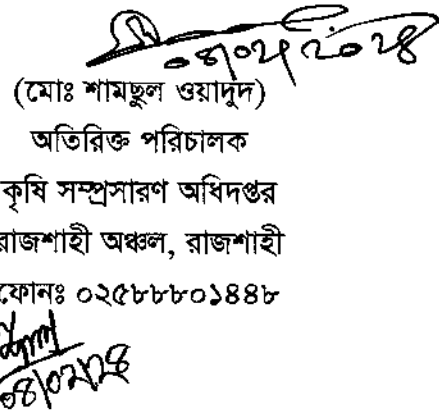 ০৪/০২/২০২৪
(মোঃ শামছুল ওয়াদুদ)
অতিরিক্ত পরিচালক
কৃষি সম্প্রসারণ অধিদপ্তর
রাজশাহী অঞ্চল, রাজশাহী
ফোনঃ ০২৫৮৮৮০১৪৪৮
০৪/০২/২৪